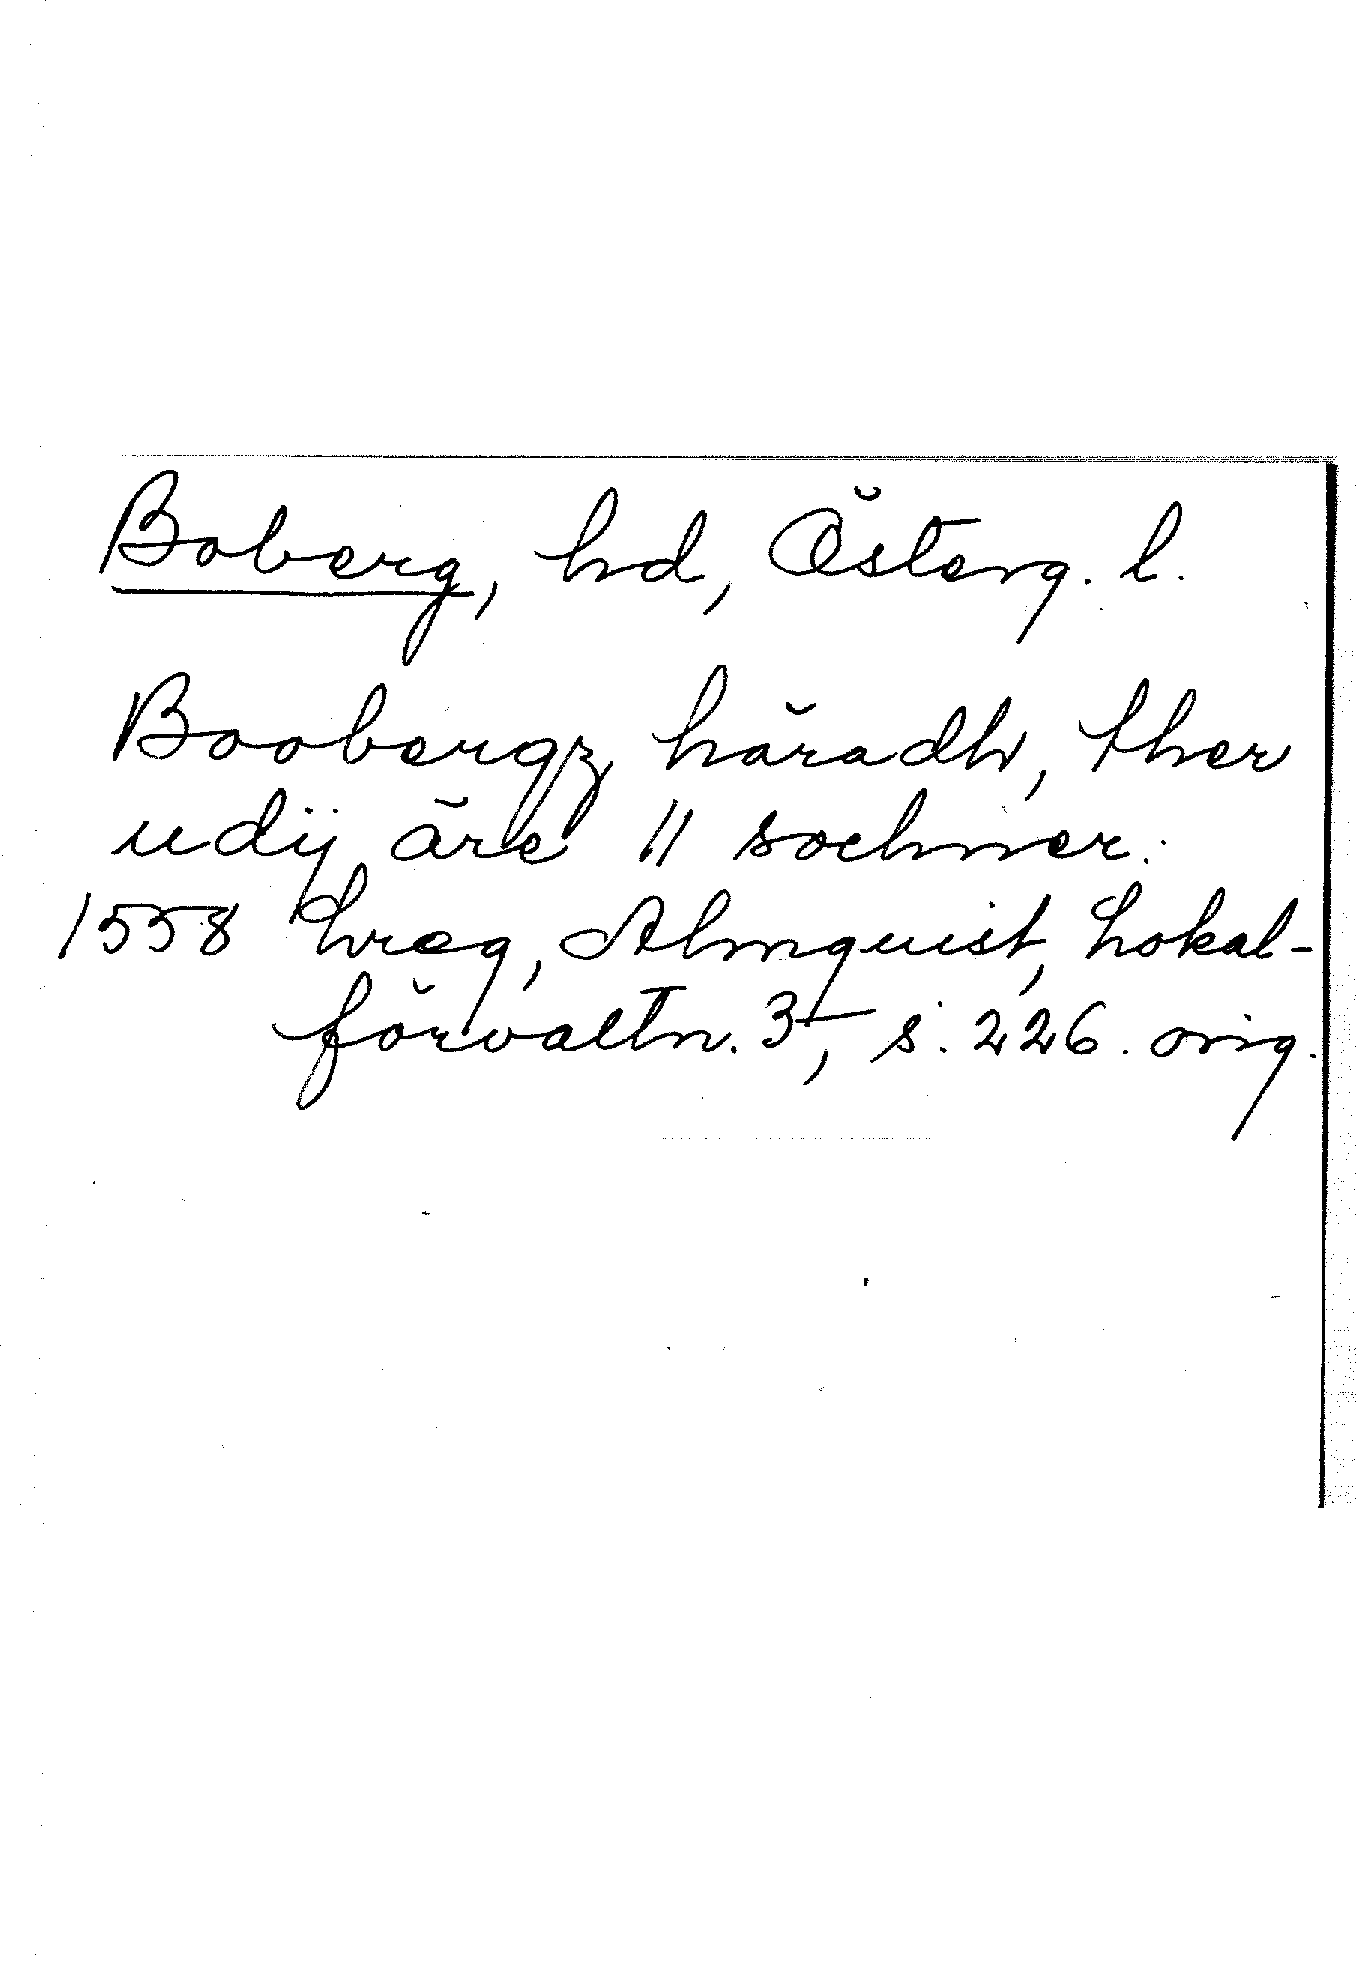 Boberg, hd, Österg. l.
Boobergz häradh, ther
udij äre 11 sochner.
1558 Lreg, Almquist, Lokal-
förvaltn. 3, s. 226. orig.